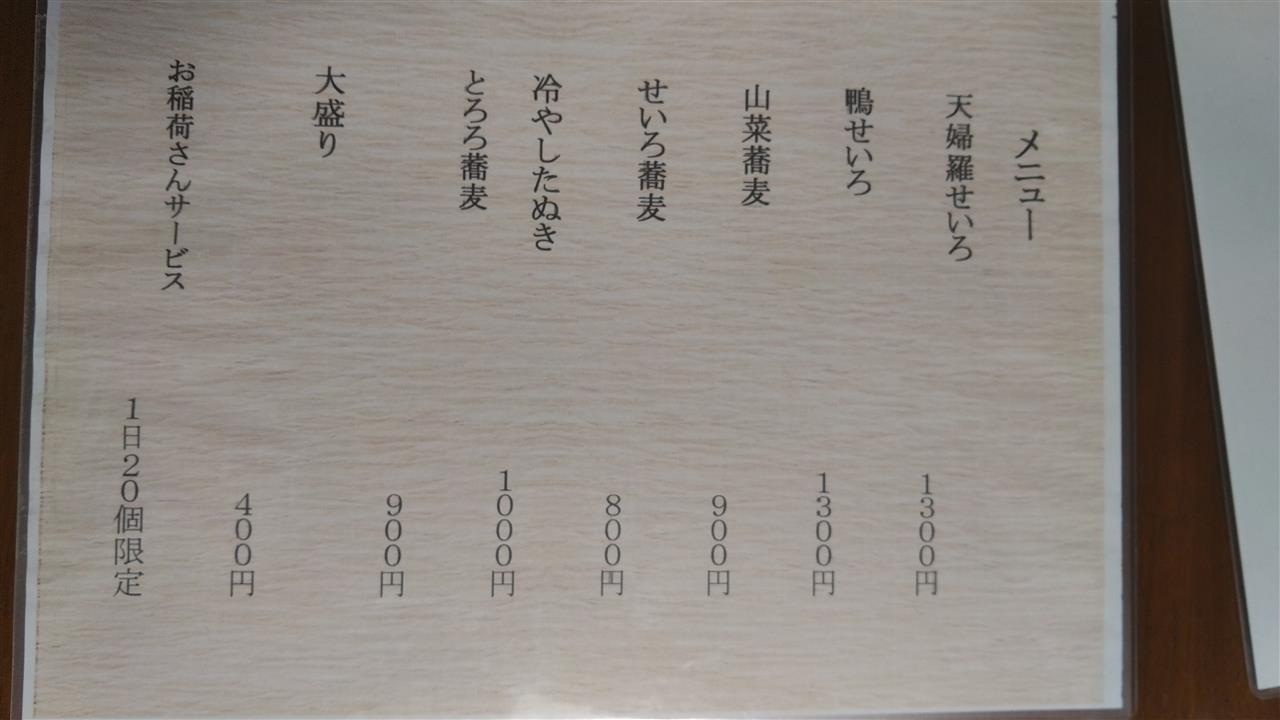 メニュー
天婦羅せいろ
1300円
鴨せいろ
1300円
山菜蕎麦
900円
せいろ蕎麦
800円
冷やしたぬき
1000円
とろろ蕎麦
900円
大盛り
400円
お稲荷さんサービス
1日20個限定